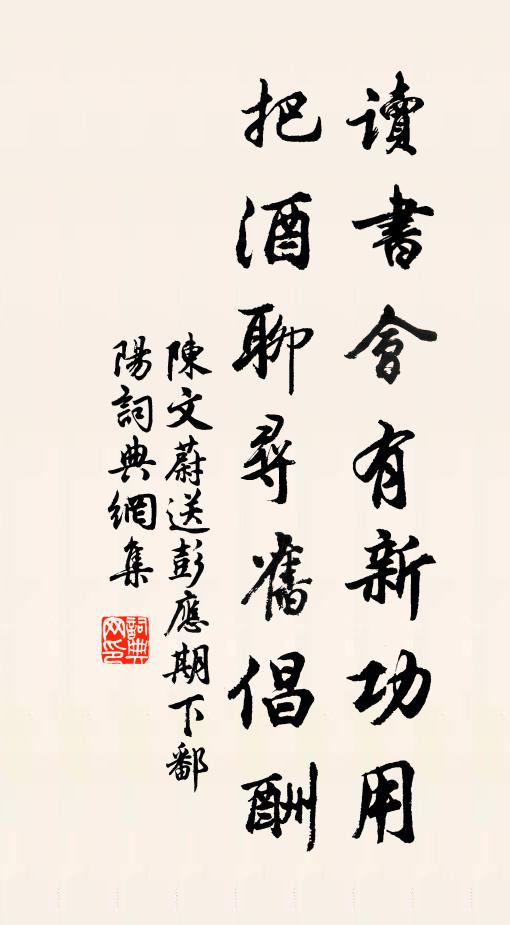 讀書會有新功用
把酒聊尋舊倡酬
陳文蔚送彭應期下鄱
陽詞典網集
詞典網印